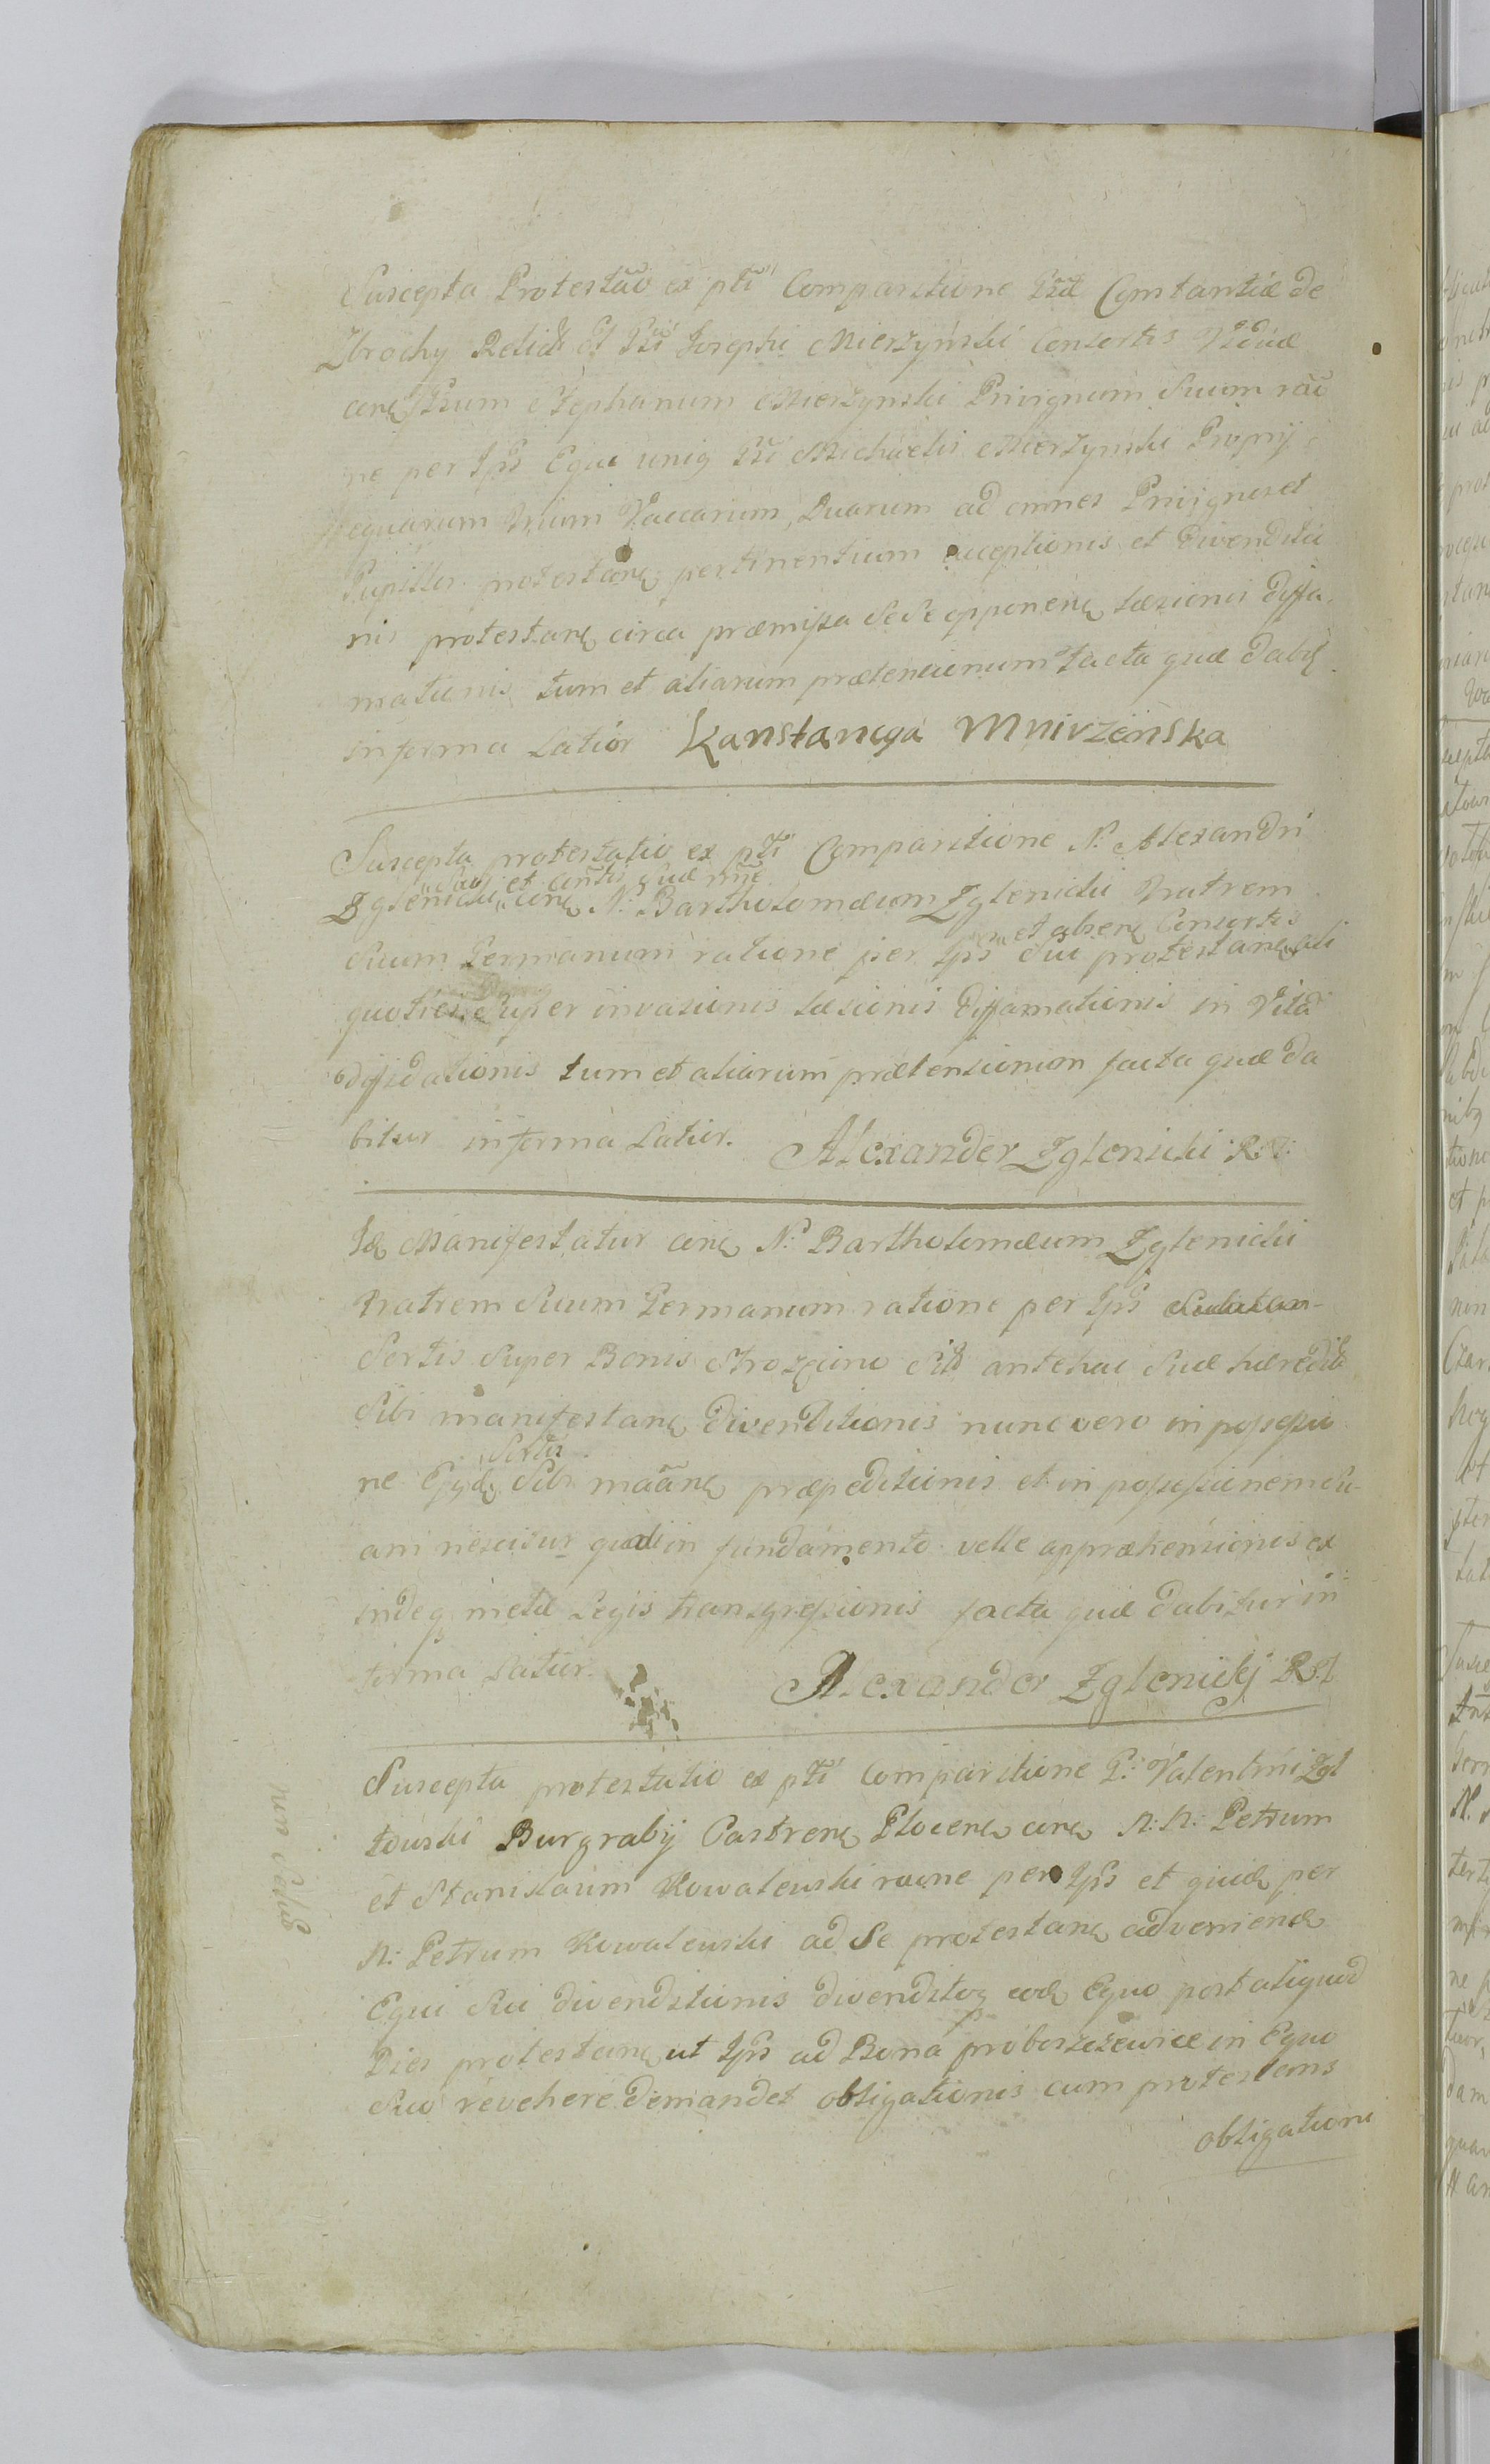 Suscepta Protestão ex ptĩ Comparitione Gsæ Constantiæ de
Zbrochy Relictæ Gsi Josephi Mierzynski Consortis Viduæ
conꝫ Gsum Stephanum Mierzynski Privignum Suum raõ
ne per Ips Equi uniꝫ Gsi Michaelis Mierzynski Proprij
equarum trium Vaccarum, Duarum ad omnes Privignos et
Pupillos protestanꝫ pertinentium acceptionis et Divenditio
nis protestanꝫ circa præmissa Se Se opponenꝫ Læsionis diffa
mationis tum et aliarum prætensionum facta quæ dabꝫ
in forma Latior Kanstancya Mnirzenska
Suscepta protestatio ex ptĩ Comparitione N: Alexandri
Suo et Consortis Suæ nñe
Zglenicki conꝫ N: Bartholomæum Zglenicki Fratrem
et absenꝫ Consortis
Suum Germanum ratione per Ips Sui protestanꝫ ali
quoties Super invasionis Læsionis Diffamationis in Vitã
diffidationis tum et aliarum prætensionum facta quæ da
bitur in forma Latior. Alexander Zglenicki R: T:
Id Manifestatur conꝫ N: Bartholomæum Zglenicki
Fratrem Suum Germanum ratione per Ips
Sortis Super Bonis Strozęcino Sitæ antehac Suæ hæredit
Sibi manifestanꝫ Divenditionis nunc vero in possessio
Sortis
ne Ejꝫdꝫ Sibi maãnꝫ præpeditionis et in possessionem Su
am nescitur quali in fundamento velle appræhensionis ex
indeꝫ metæ Legis transgressionis facta quæ dabitur in
forma Latior. Alexander Zglenickij R T
Suscepta protestatio ex ptĩ Comparitione G: Valentini Zgl
towski Burgrabij Castrenꝫ Plocenꝫ conꝫ N: N: Petrum
et Stanislaum Kowalewski raõne per Ips et quidꝫ per
N: Petrum Kowalewski ad Se protestanꝫ advenienꝫ
Equi Sui divenditionis divenditoꝫ eodꝫ Equo post aliquod
Dies protestanꝫ ut Ips ad Bona proboszczewice in Equo
Suo revehere demandet obligationis cum protestans
obligatione
non Solus